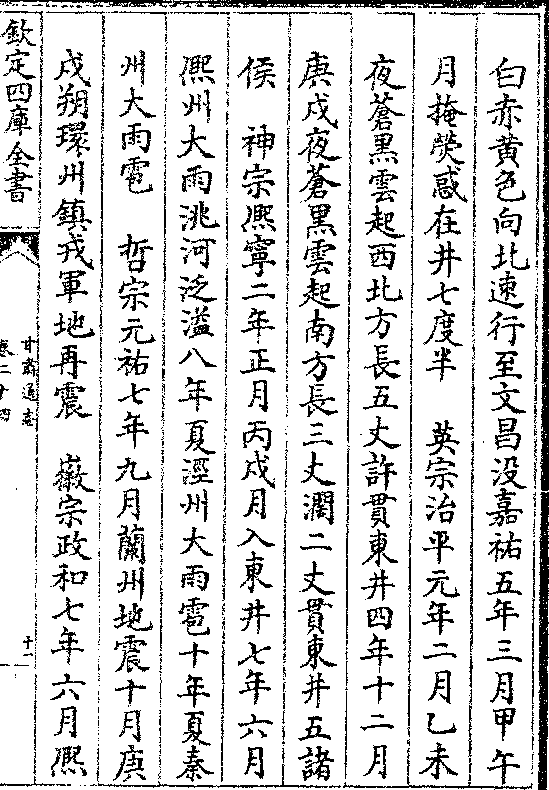 白赤黄色向北速行至文昌没嘉祐五年三月甲午
月掩熒惑在井七度半　英宗治平元年二月乙未
夜蒼黑雲起西北方長五丈許貫東井四年十二月
庚戌夜蒼黑雲起南方長三丈濶二丈貫東井五諸
侯　神宗熈寧二年正月丙戌月入東井七年六月
熈州大雨洮河泛溢八年夏涇州大雨雹十年夏秦
州大雨雹　哲宗元祐七年九月蘭州地震十月庚
戌朔環州鎮戎軍地再震　徽宗政和七年六月熈
欽定四庫全書
甘肅通志
卷二十四
十一